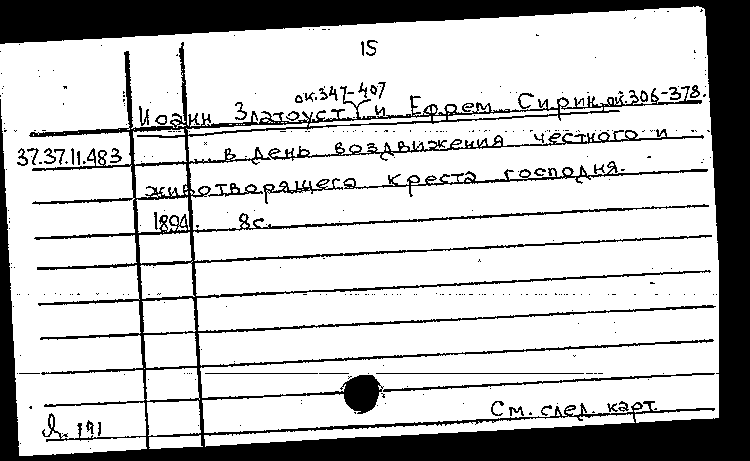 15
ок.347-407
Иоанн Златоуст и Ефрем Сирин, ок.306-378.
37.37.11.483 ... в день воздвижения честного и
животворящего креста господня.
1894. 8с.
См. след. карт.
191